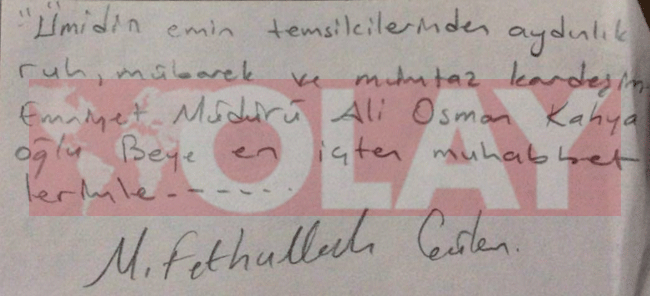 "Ümidin emin temsilcilerinden aydınlık
ruh, mübarek ve mümtaz kardeşim
Emniyet Müdürü Ali Osman Kahya
oğlu Beye en içten muhabbet
lerimle - - - - - -
M. Fethullah Gülen.
OLAY